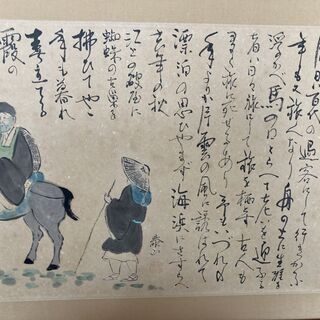 月日は百代の過客にして行きかふ
年も又旅人なり舟の上に生涯を
浮かべ馬の口とらへて老を迎ふる
者は日々旅にして旅を栖とす古人も
多く旅に死せるあり予もいづれの
年よりか片雲の風に誘はれて
漂泊の思ひやまず海浜にさすらへ
去年の秋
江上の破屋に
蜘蛛の古巣を
拂ひてやゝ
年も暮れ
春立てる
霞の